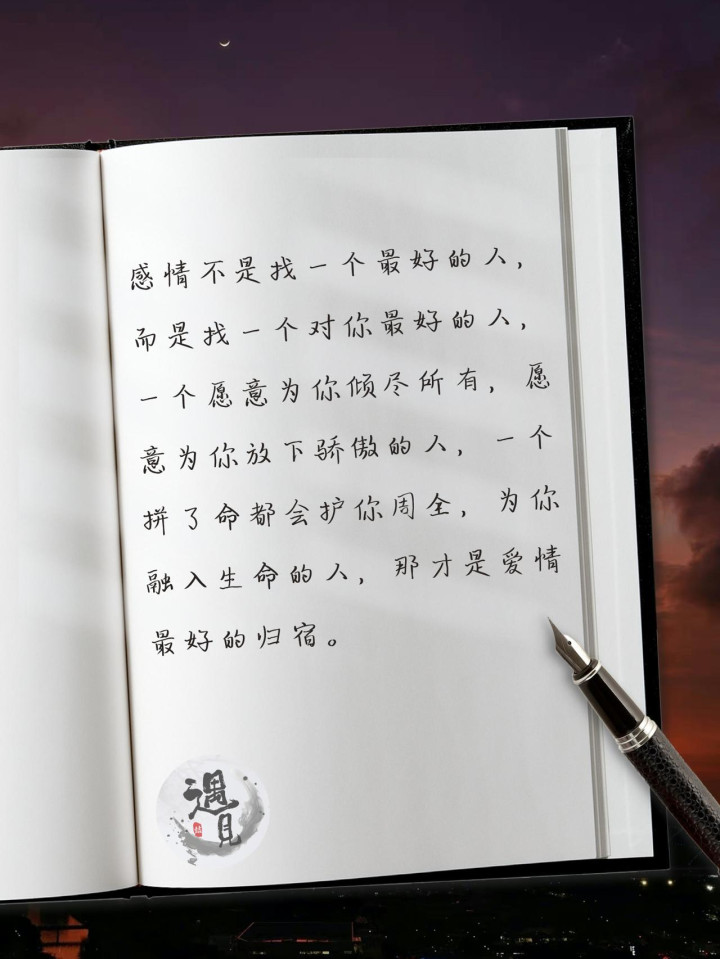 感情不是找一个最好的人，
而是找一个对你最好的人，
一个愿意为你倾尽所有，愿
意为你放下骄傲的人，一个
拼了命都会护你周全，为你
融入生命的人，那才是爱情
最好的归宿。
遇見